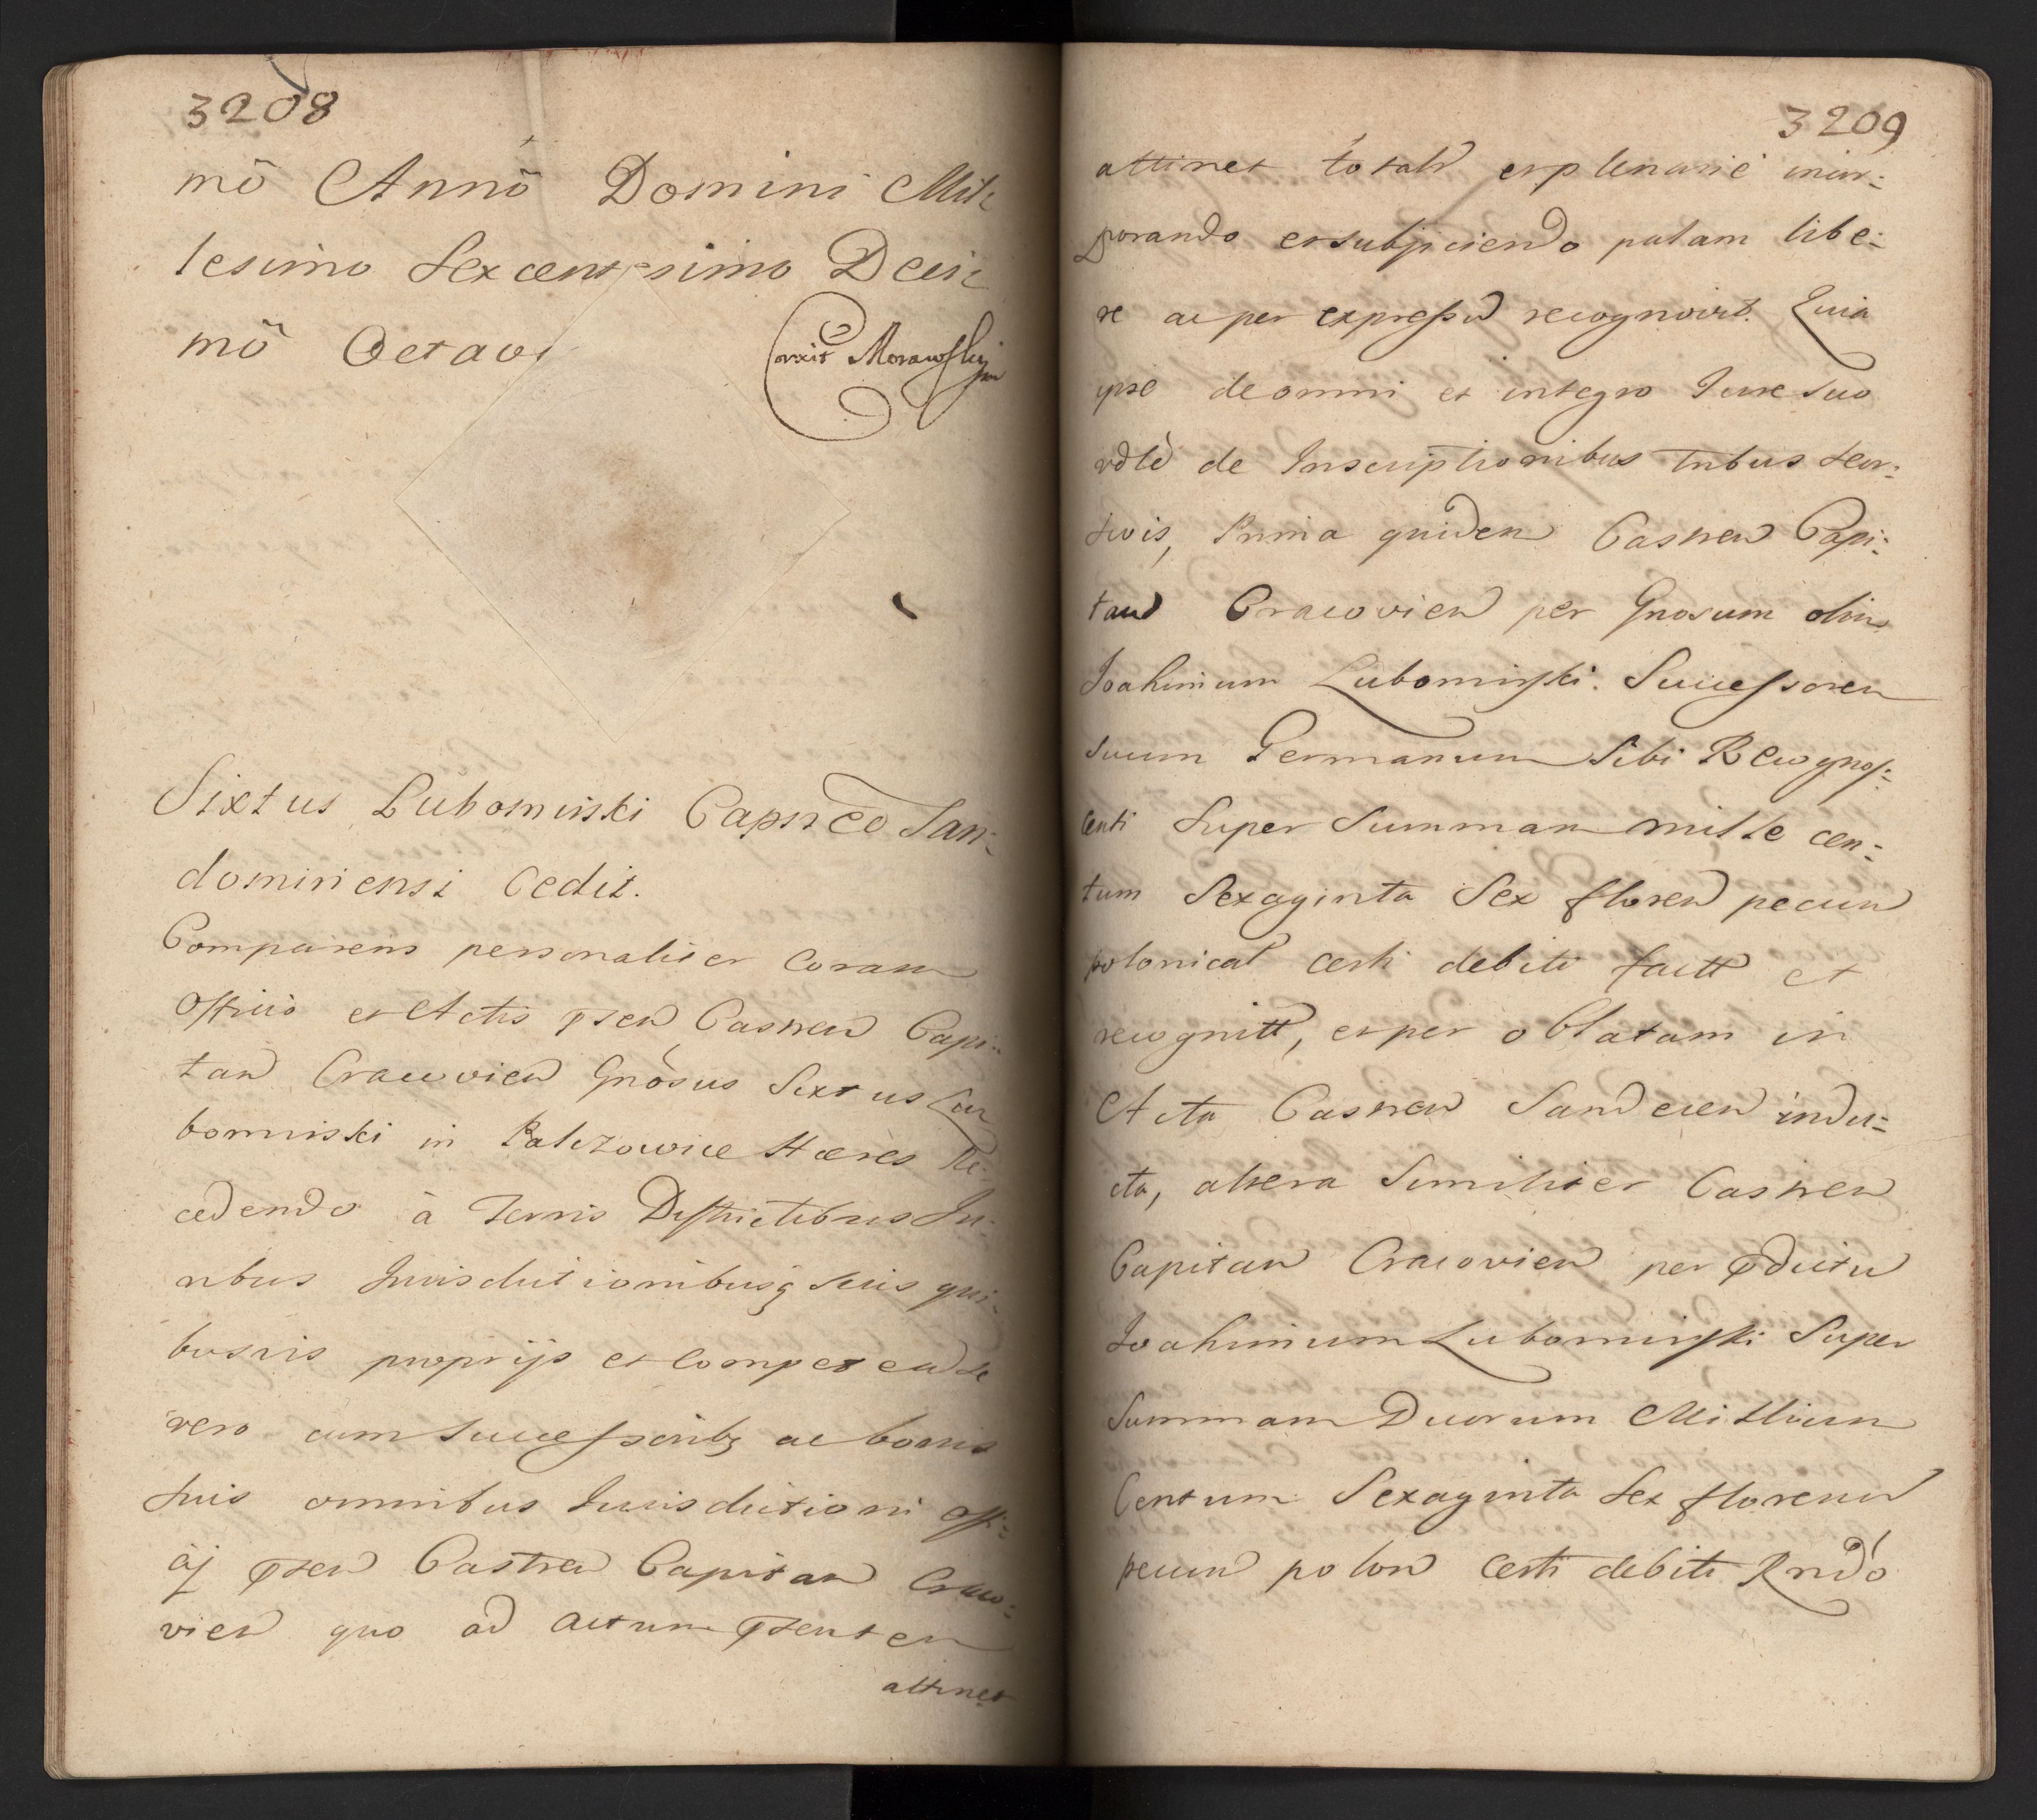 3208
mō Annō Domini Mil:
lesimo Sexcentesimo Deci:
mō Octavo
Correxit Morawskij mp
Sixtus Lubomirski Capneo San:
domiriensi Cedit.
Comparens personaliter Coram
Officio et Actis psen Castren Capi:
tan Cracovien Gnosus Sixtus Lu
bomirski in Palczowice Hæres Re:
cedendo à Terris Districtibus Ju:
ribus Jurisdictionibusq suis qui:
busvis proprijs et Competen se
vero cum Successoribq ac bonis
suis omnibus Jurisdictioni Offi:
cij psen Castren Capitan Craco:
vien quo ad actum psenten
attinet
3209
attinet totalr explenarie incor:
porando et subjiciendo palam libe:
re ac per expressu recognovit. Quia
ipse de omni et integro Jure suo
vdlt de Inscriptionibus tribus seor:
sivis, Prima quidem Castren Capi:
tan Cracovien per Gnosum olim
Joahimum Lubomirski. Successoren
suum Germanum Sibi Recognos:
centi Super Summam mille cen:
tum Sexaginta Sex floren pecun
polonical certi debiti factt et
recognitt, et per oblatam in
Acta Castren Sandecen indu:
cta, altera Similiter Castren
Capitan Cracovien per pdictu
Joahimum Lubomirski Super
Summam Duorum Millium
Centum Sexaginta Sex florenu
pecun polon Certi debiti Rndo